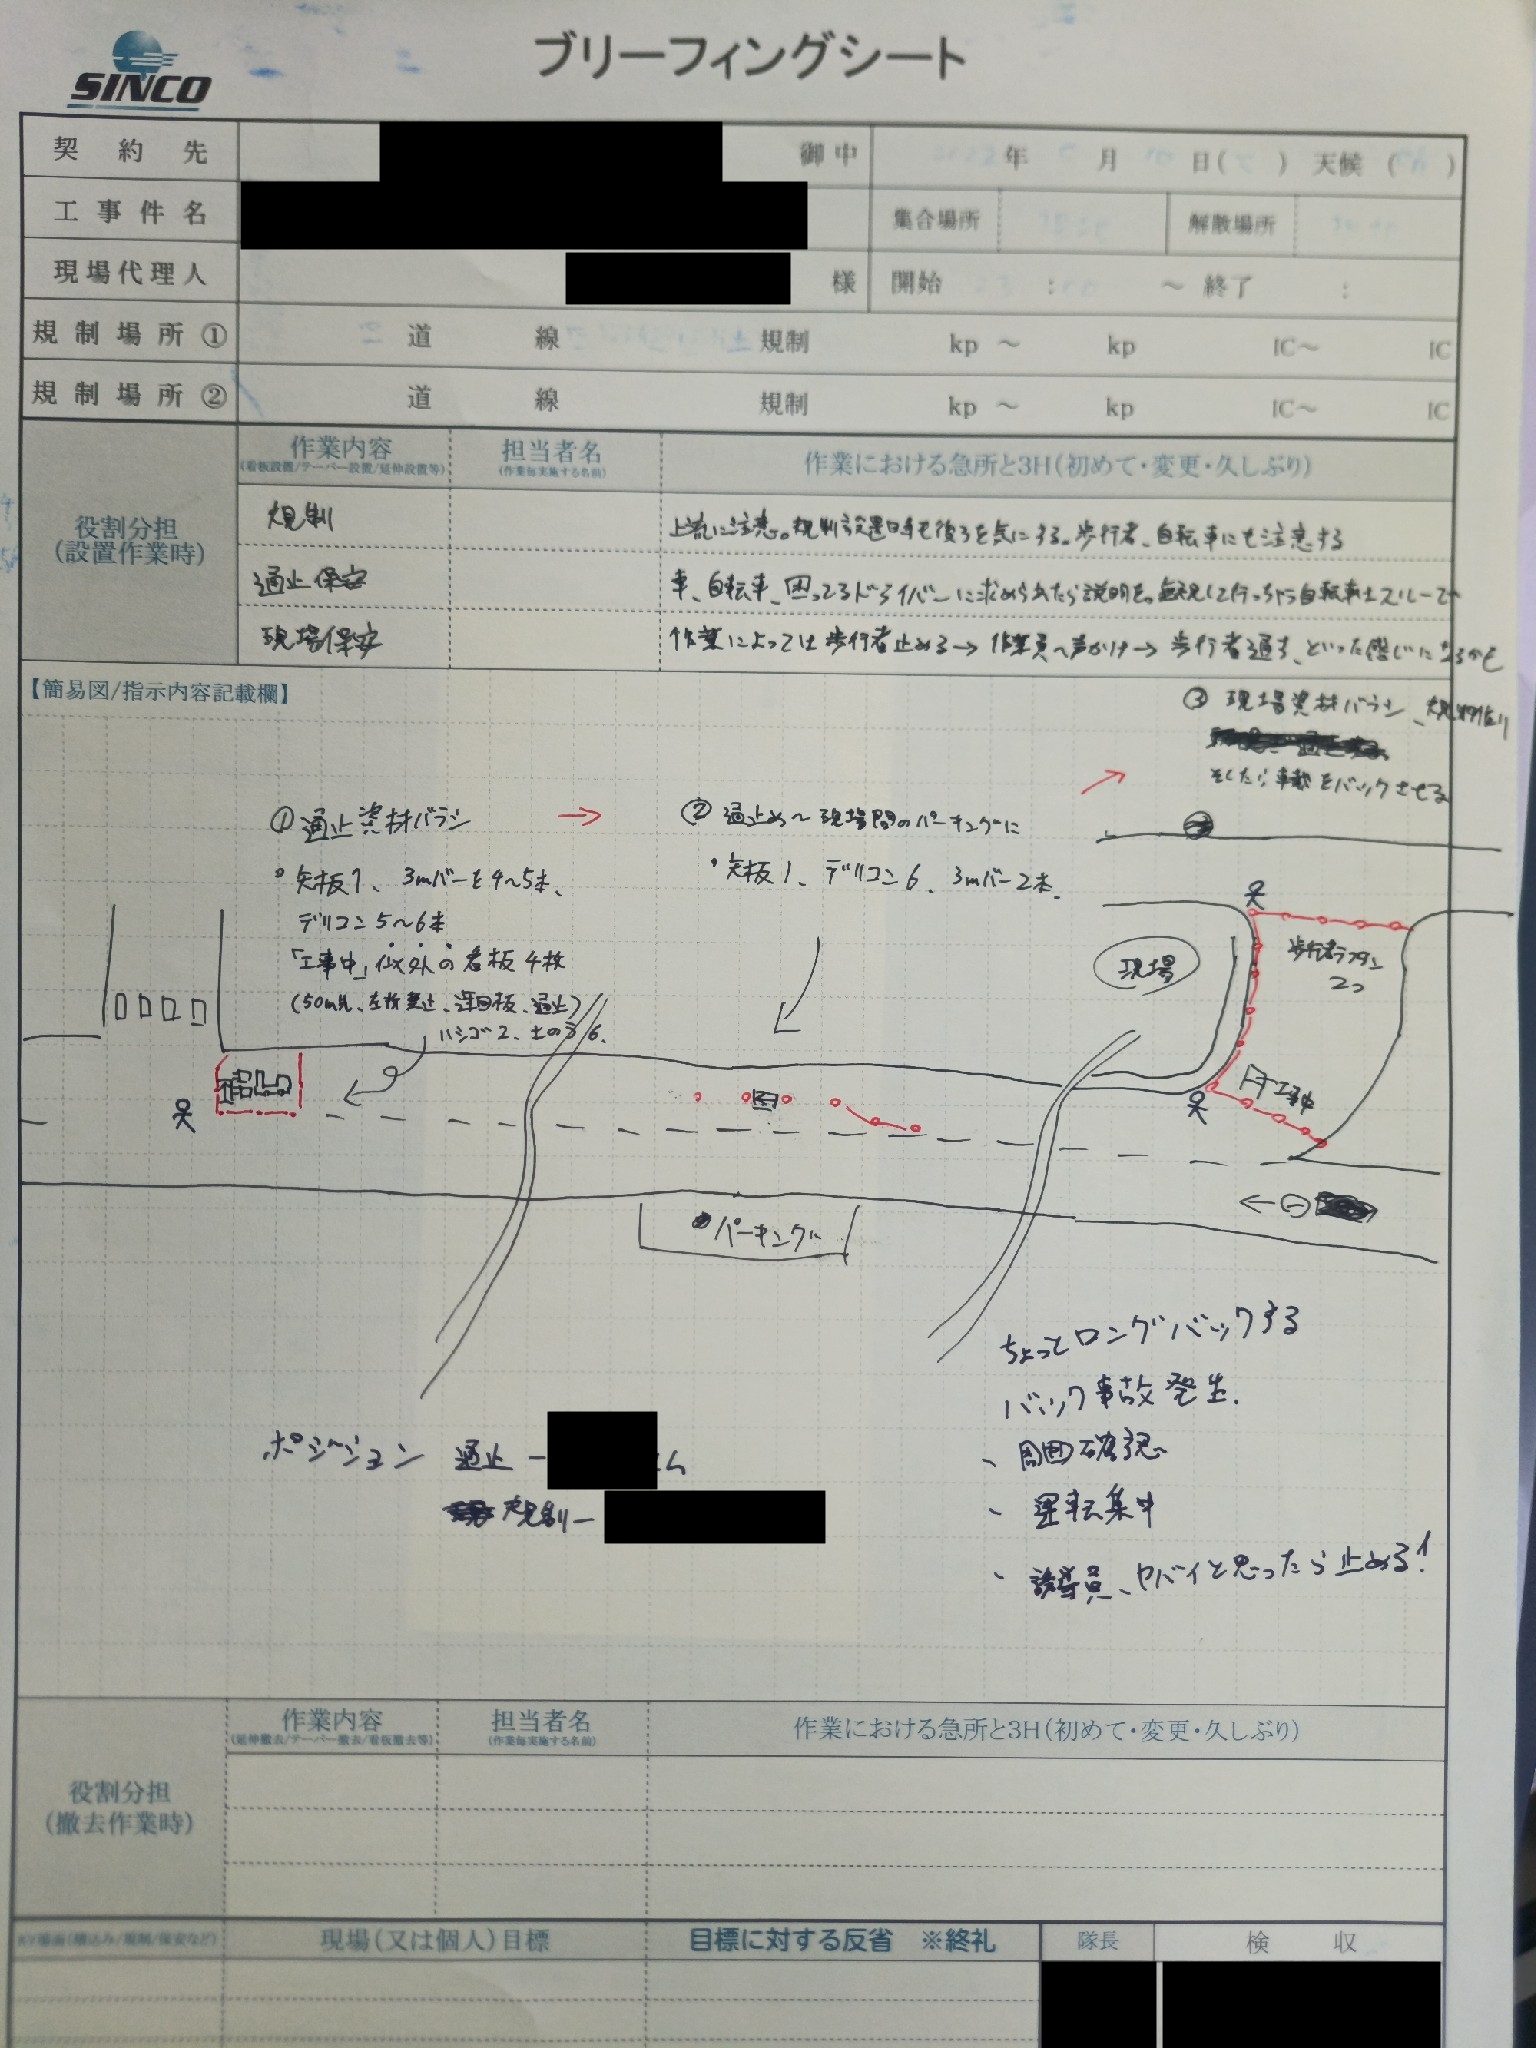 SINCO
ブリーフィングシート
契約先 御中 年 月 10 日( ) 天候 ( )
工事件名 集合場所 解散場所
現場代理人 様 開始 23 : 00 ～ 終了 :
規制場所① 道 線 規制 kp ～ kp IC～ IC
規制場所② 道 線 規制 kp ～ kp IC～ IC
役割分担
(設置作業時)
作業内容
(看板設置/テーパー設置/延伸設置等)
担当者名
(作業毎実施する名前)
作業における急所と3H(初めて・変更・久しぶり)
規制 上流に注意。規制設置時も後ろを気にする。歩行者、自転車にも注意する
通止保安 車、自転車、困ってるドライバーに求められたら説明を。無視して行っちゃう自転車はスルーで
現場保安 作業によっては歩行者止める→作業員へ声かけ→歩行者通す、といった感じになるかも
【簡易図/指示内容記載欄】
③ 現場資材バラシ、規制作り
そしたら車載をバックさせる
① 通止資材バラシ →
② 通止め～現場間のパーキングに →
・矢板1、3mバーを4～5本、
デリコン5～6本
「工事中」以外の看板4枚
(50m先、左折禁止、迂回板、通止)
ハシゴ2、土のう6.
・矢板1、デリコン6、3mバー2本.
現場
歩行者プラタン
2つ
工事中
パーキング
ちょっとロングバックする
バック事故発生.
、周囲確認
、運転集中
、誘導員、ヤバイと思ったら止める!
ポジション 通止ー
規制ー
役割分担
(撤去作業時)
作業内容
(延伸撤去/テーパー撤去/看板撤去等)
担当者名
(作業毎実施する名前)
作業における急所と3H(初めて・変更・久しぶり)
KY場面(積込み/規制/保安など) 現場(又は個人)目標 目標に対する反省 ※終礼 隊長 検収